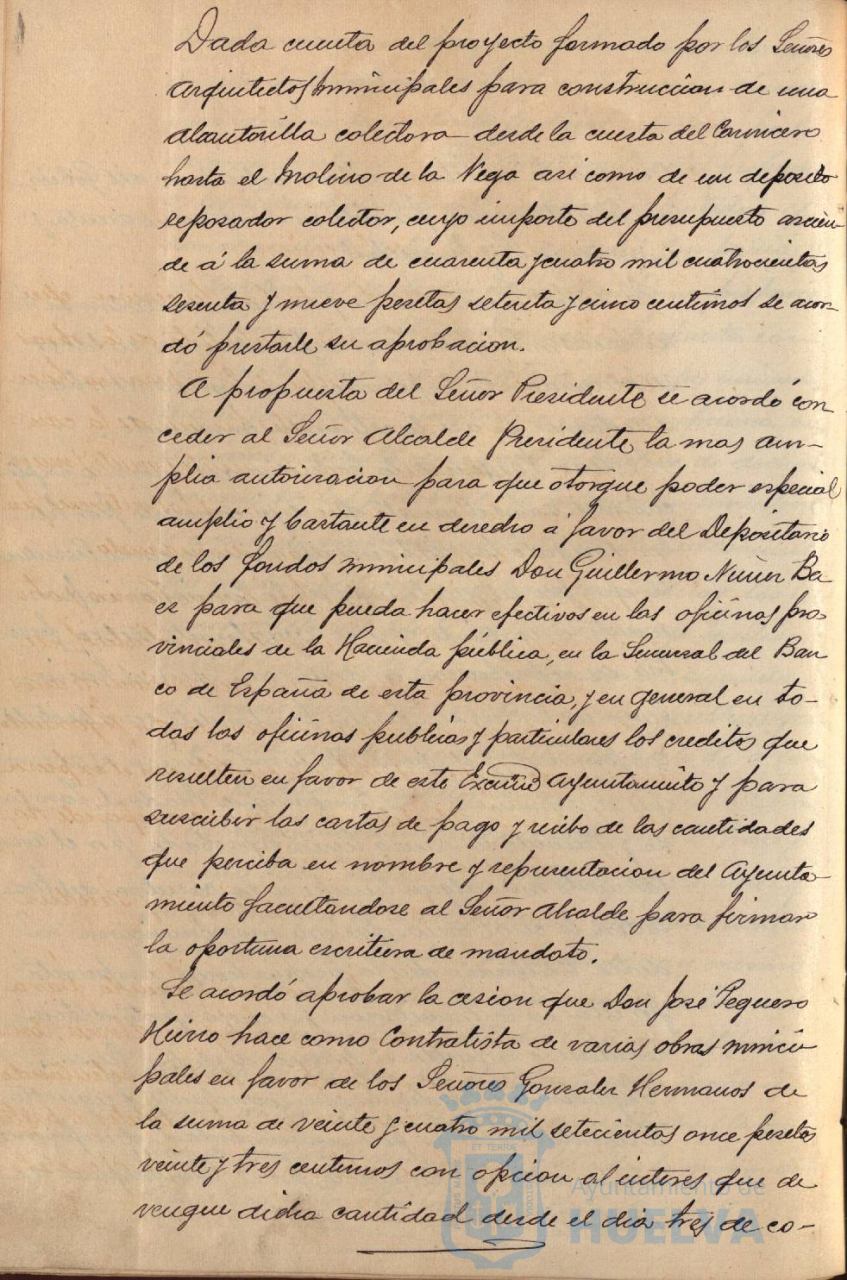 Dada cuenta del proyecto formado por los Señores
Arquitectos municipales para construccion de una
alcantarilla colectora desde la cuesta del Carnicero
hasta el Molino de la Vega asi como de un deposito
reposador colector, cuyo importe del presupuesto ascien-
de á la suma de cuarenta y cuatro mil cuatrocientas
sesenta y nueve pesetas setenta y cinco centimos se acor-
dó prestarle su aprobacion.
A propuesta del Señor Presidente se acordó con
ceder al Señor Alcalde Presidente la mas am-
plia autorizacion para que otorgue poder especial
amplio y bastante en derecho á favor del Depositario
de los fondos municipales Don Guillermo Nuñez Ba
ez para que pueda hacer efectivos en las oficinas pro-
vinciales de la Hacienda pública, en la Sucursal del Ban
co de España de esta provincia, y en general en to-
das las oficinas publicas y particulares los creditos que
resulten en favor de este Excmo Ayuntamiento y para
suscribir las cartas de pago y recibo de las cantidades
que perciba en nombre y representacion del Ayunta-
miento facultandose al Señor Alcalde para firmar
la oportuna escritura de mandato.
Se acordó aprobar la cesion que Don José Peguero
Hierro hace como Contratista de varias obras munici
pales en favor de los Señores Gonzalez Hermanos de
la suma de veinte y cuatro mil setecientas once pesetas
veinte y tres centimos con opcion al interes que de
vengue dicha cantidad desde el dia tres de co-
Ayuntamiento de
HUELVA